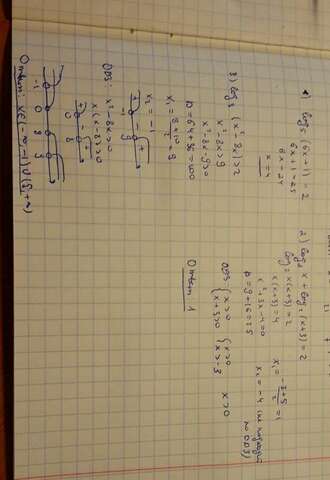 1) log₅ (6x+1) = 2
6x+1 = 25
6x = 24
x = 4
2) log₂ x + log₂ (x+3) = 2
log₂ x(x+3) = 2
x(x+3) = 4
x²+3x-4=0
D = 9+16=25
x₁ = (-3+5)/2 = 1
x₂ = -4 (не подходит
по ОДЗ)
ОДЗ: { x>0 { x>0 x>0
x+3>0 x>-3
Ответ: 1
3) log₃ (x²-8x)>2
x²-8x>9
x²-8x-9>0
D=64+36=100
x₁ = (8+10)/2 = 9
x₂ = -1
+ - +
-1 9
ОДЗ: x²-8x>0
x(x-8)>0
+ - +
0 8
-1 0 8 9
Ответ: x∈(-∞;-1)∪(9;+∞)